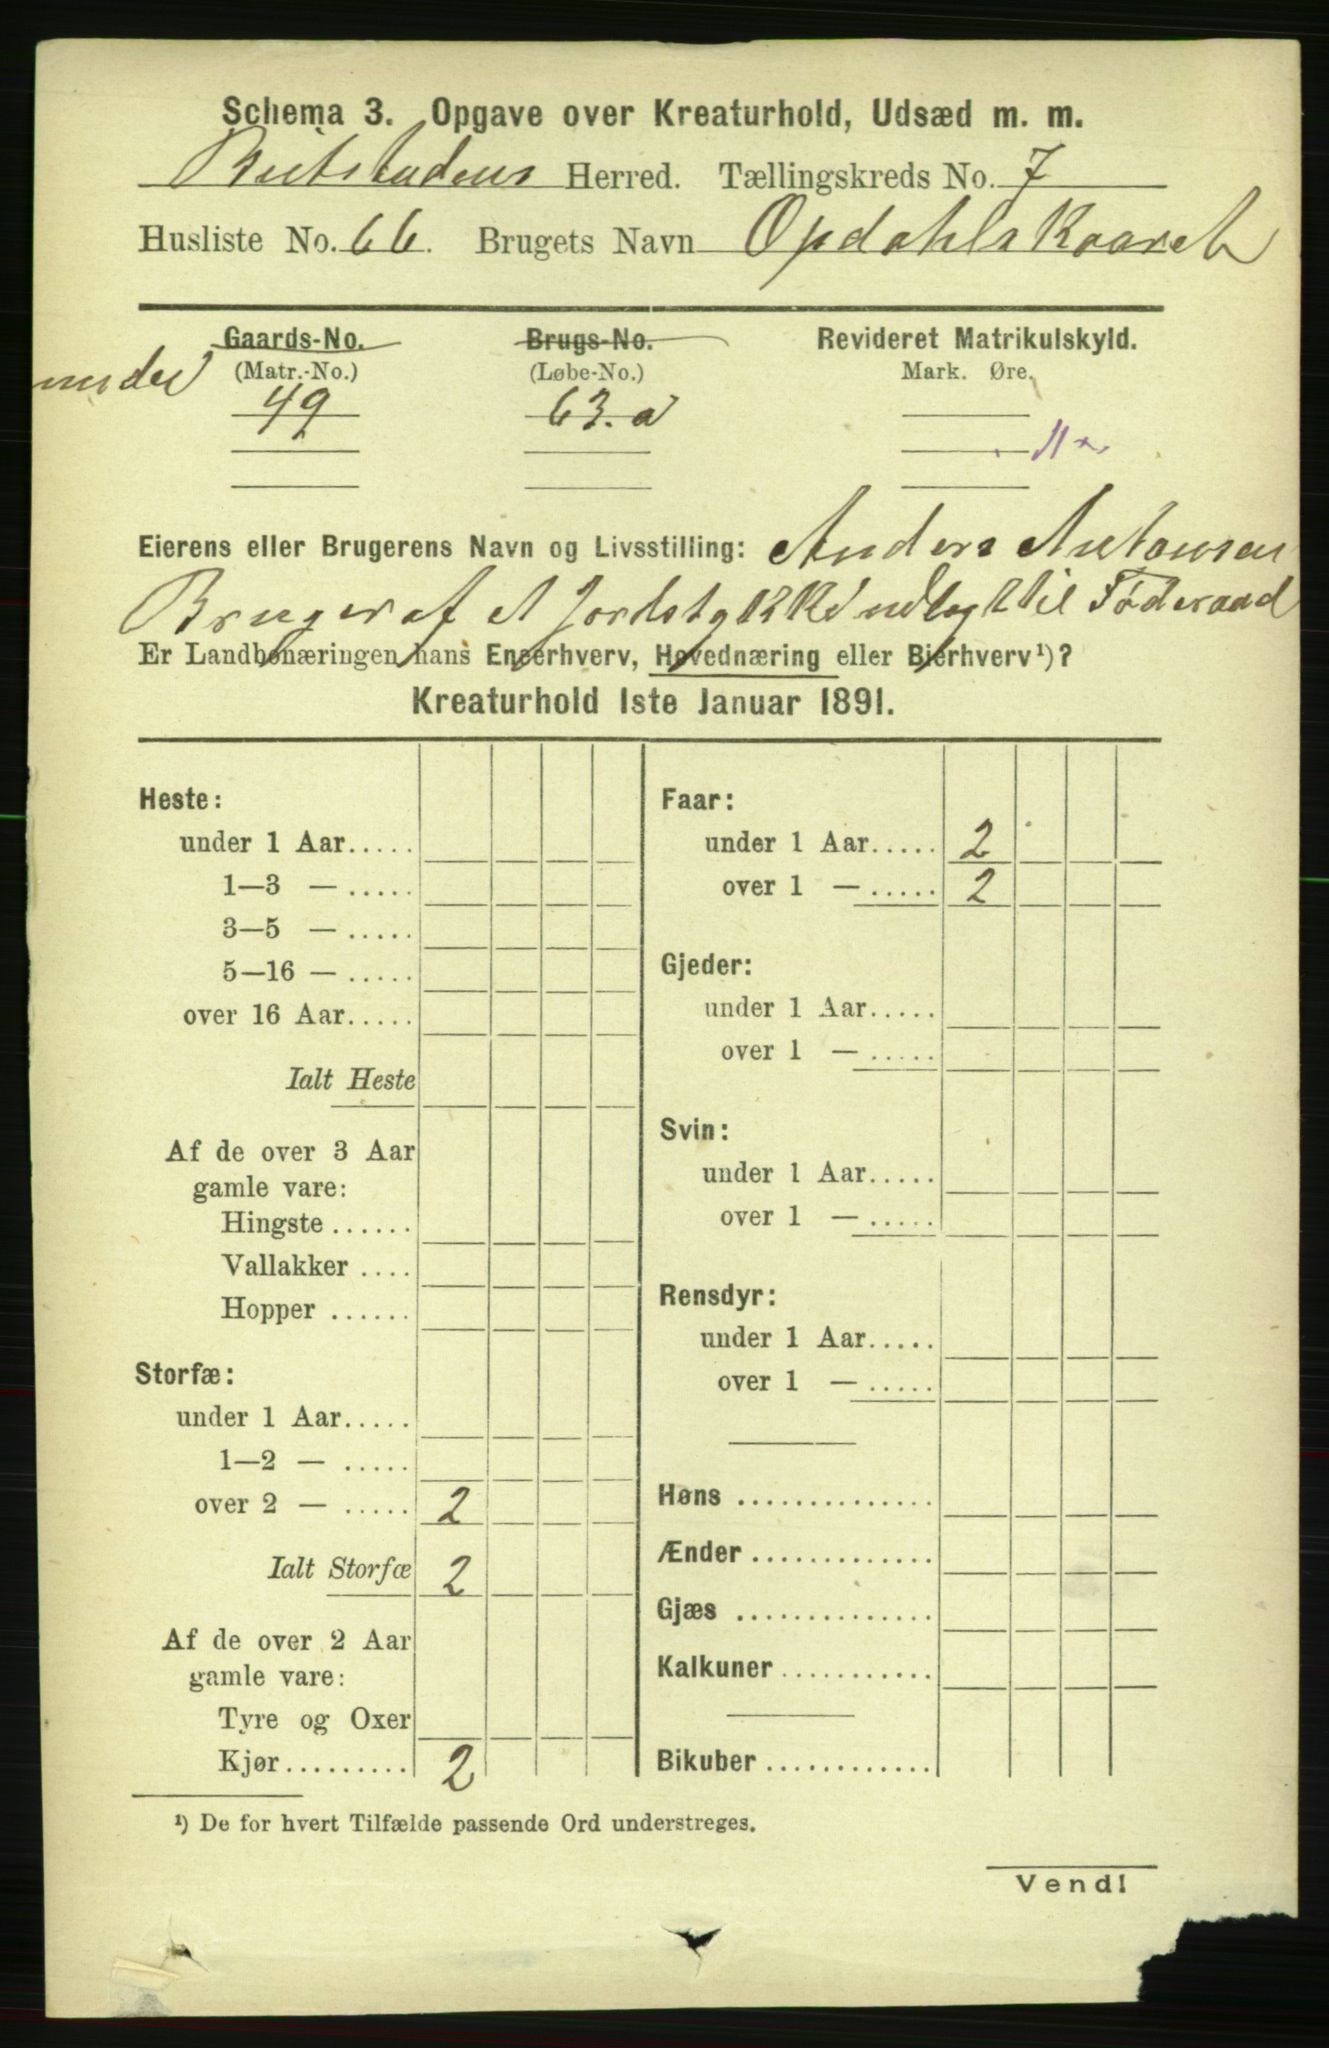 Schema 3. Opgave over Kreaturhold, Udsæd m. m.
Beitstadens Herred. Tællingskreds No. 7
Husliste No. 66. Brugets Navn Opdahlskaaret
Gaards-No. Brugs-No. Revideret Matrikulskyld.
under (Matr.-No.) (Løbe-No.) Mark. Øre.
49 63. a
Eierens eller Brugerens Navn og Livsstilling: Anders Antonsen
Bruger af et Jordstykke udlagt til Föderaad
Er Landbonæringen hans Eneerhverv, Hovednæring eller Bierhverv¹)?
Kreaturhold 1ste Januar 1891.
Heste:
under 1 Aar.....
1—3 — .....
3—5 — .....
5—16 — .....
over 16 Aar.....
Ialt Heste
Af de over 3 Aar
gamle vare:
Hingste ......
Vallakker ....
Hopper ......
Storfæ:
under 1 Aar.....
1—2 — .....
over 2 — ..... 2
Ialt Storfæ 2
Af de over 2 Aar
gamle vare:
Tyre og Oxer
Kjør......... 2
Faar:
under 1 Aar..... 2
over 1 — ..... 2
Gjeder:
under 1 Aar.....
over 1 — .....
Svin:
under 1 Aar.....
over 1 — .....
Rensdyr:
under 1 Aar.....
over 1 — .....
Høns ..............
Ænder .............
Gjæs ..............
Kalkuner ...........
Bikuber ............
¹) De for hvert Tilfælde passende Ord understreges.
Vend!